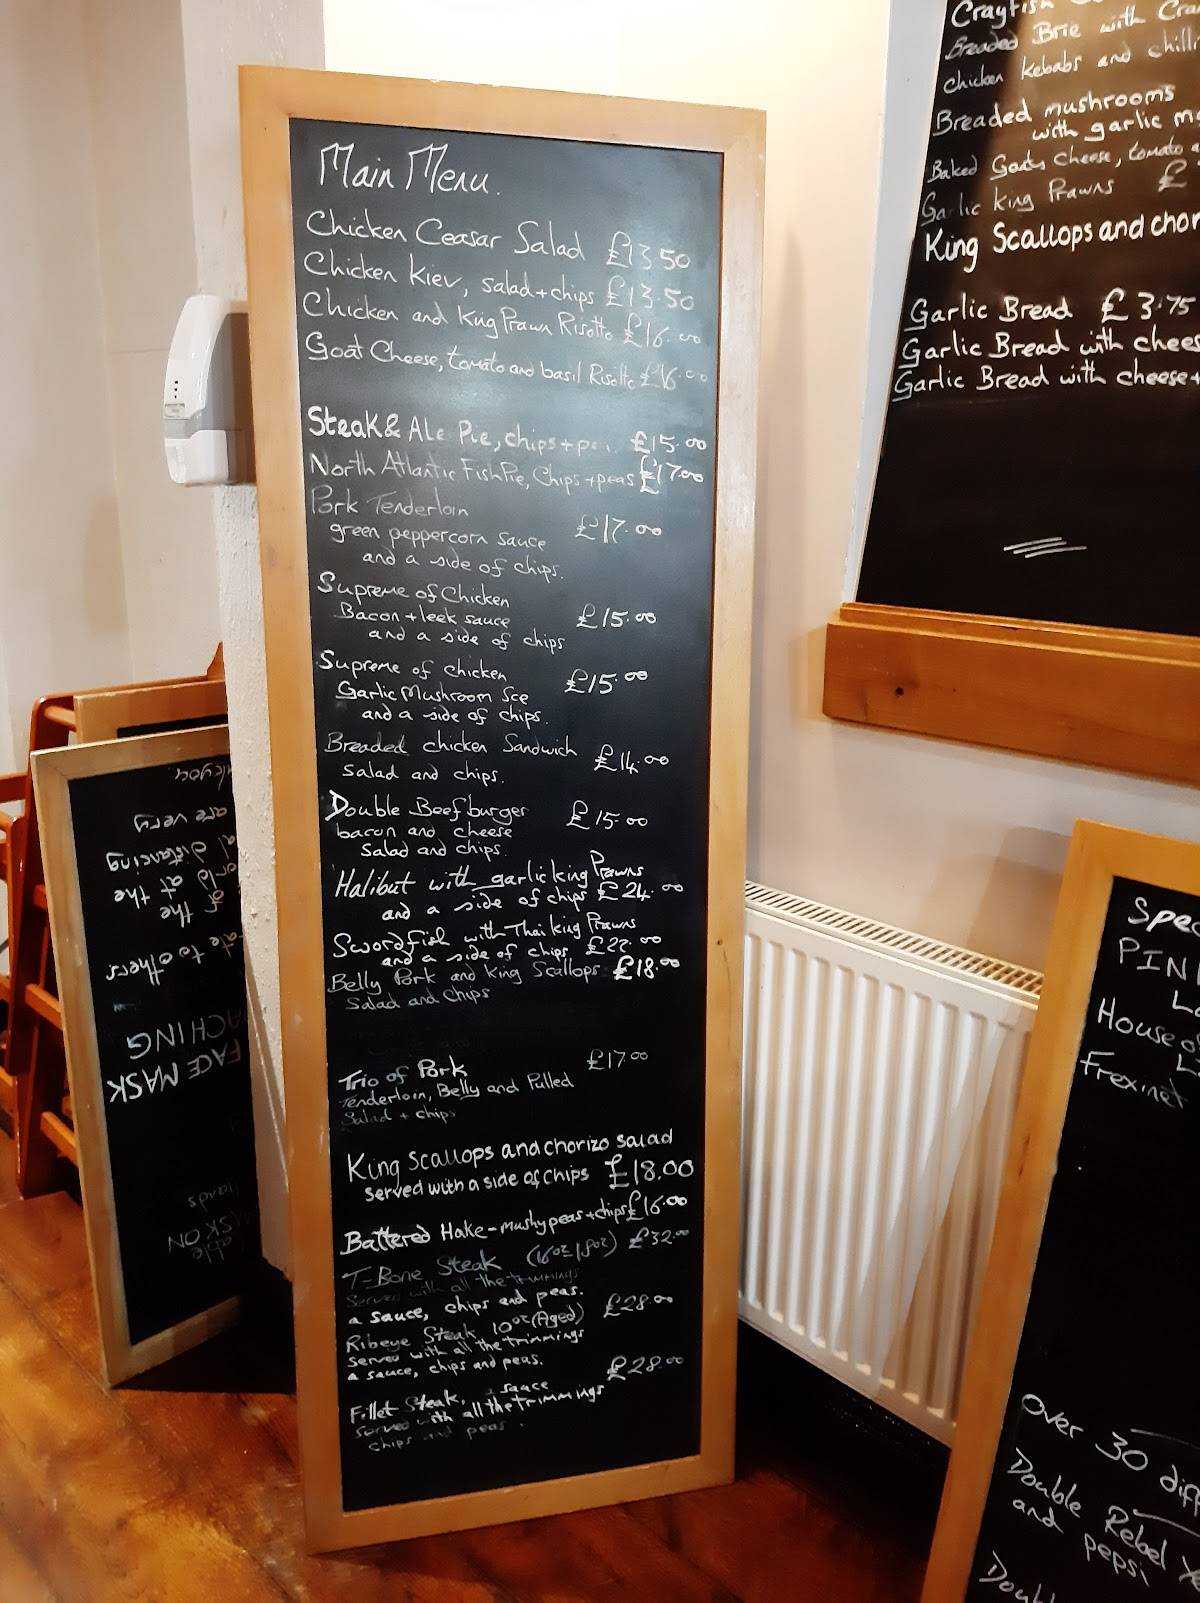 Main Menu.
Chicken Ceasar Salad £13.50
Chicken Kiev, salad + chips £13.50
Chicken and King Prawn Risotto £16.00
Goat Cheese, tomato and basil Risotto £16.00
Steak & Ale Pie, chips + pe £15.00
North Atlantic Fish Pie, Chips + peas £17.00
Pork Tenderloin
green peppercorn sauce £17.00
and a side of chips.
Supreme of Chicken
Bacon + leek sauce £15.00
and a side of chips
Supreme of chicken
Garlic Mushroom Sce £15.00
and a side of chips.
Breaded chicken Sandwich £14.00
salad and chips.
Double Beefburger £15.00
bacon and cheese
salad and chips.
Halibut with garlic king Prawns
and a side of chips £24.00
Swordfish with Thai king Prawns
and a side of chips £22.00
Belly Pork and King Scallops £18.00
Salad and chips
Trio of Pork £17.00
Tenderloin, Belly and Pulled
Salad + chips
King Scallops and chorizo salad
served with a side of chips £18.00
Battered Hake - mushy peas + chips £16.00
T-Bone Steak (16oz/18oz) £32.00
Served with all the trimmings
a sauce, chips and peas.
Ribeye Steak 10oz (Aged) £28.00
served with all the trimmings
a sauce, chips and peas.
Fillet Steak, a sauce £28.00
served with all the trimmings
chips and peas.
Crayfish
Breaded Brie with Cra
Chicken Kebabs and chilli
Breaded mushrooms
with garlic ma
Baked Goats Cheese, tomato a
Garlic King Prawns £
King Scallops and chor
Garlic Bread £3.75
Garlic Bread with chees
Garlic Bread with cheese +
Spec
PIN
House o
Frexinet
Over 30 diff
Double Rebel
and pepsi
Doub
are very
distancing
at the
of the
to others
ACHING
FACE MASK
Hands
MASK ON